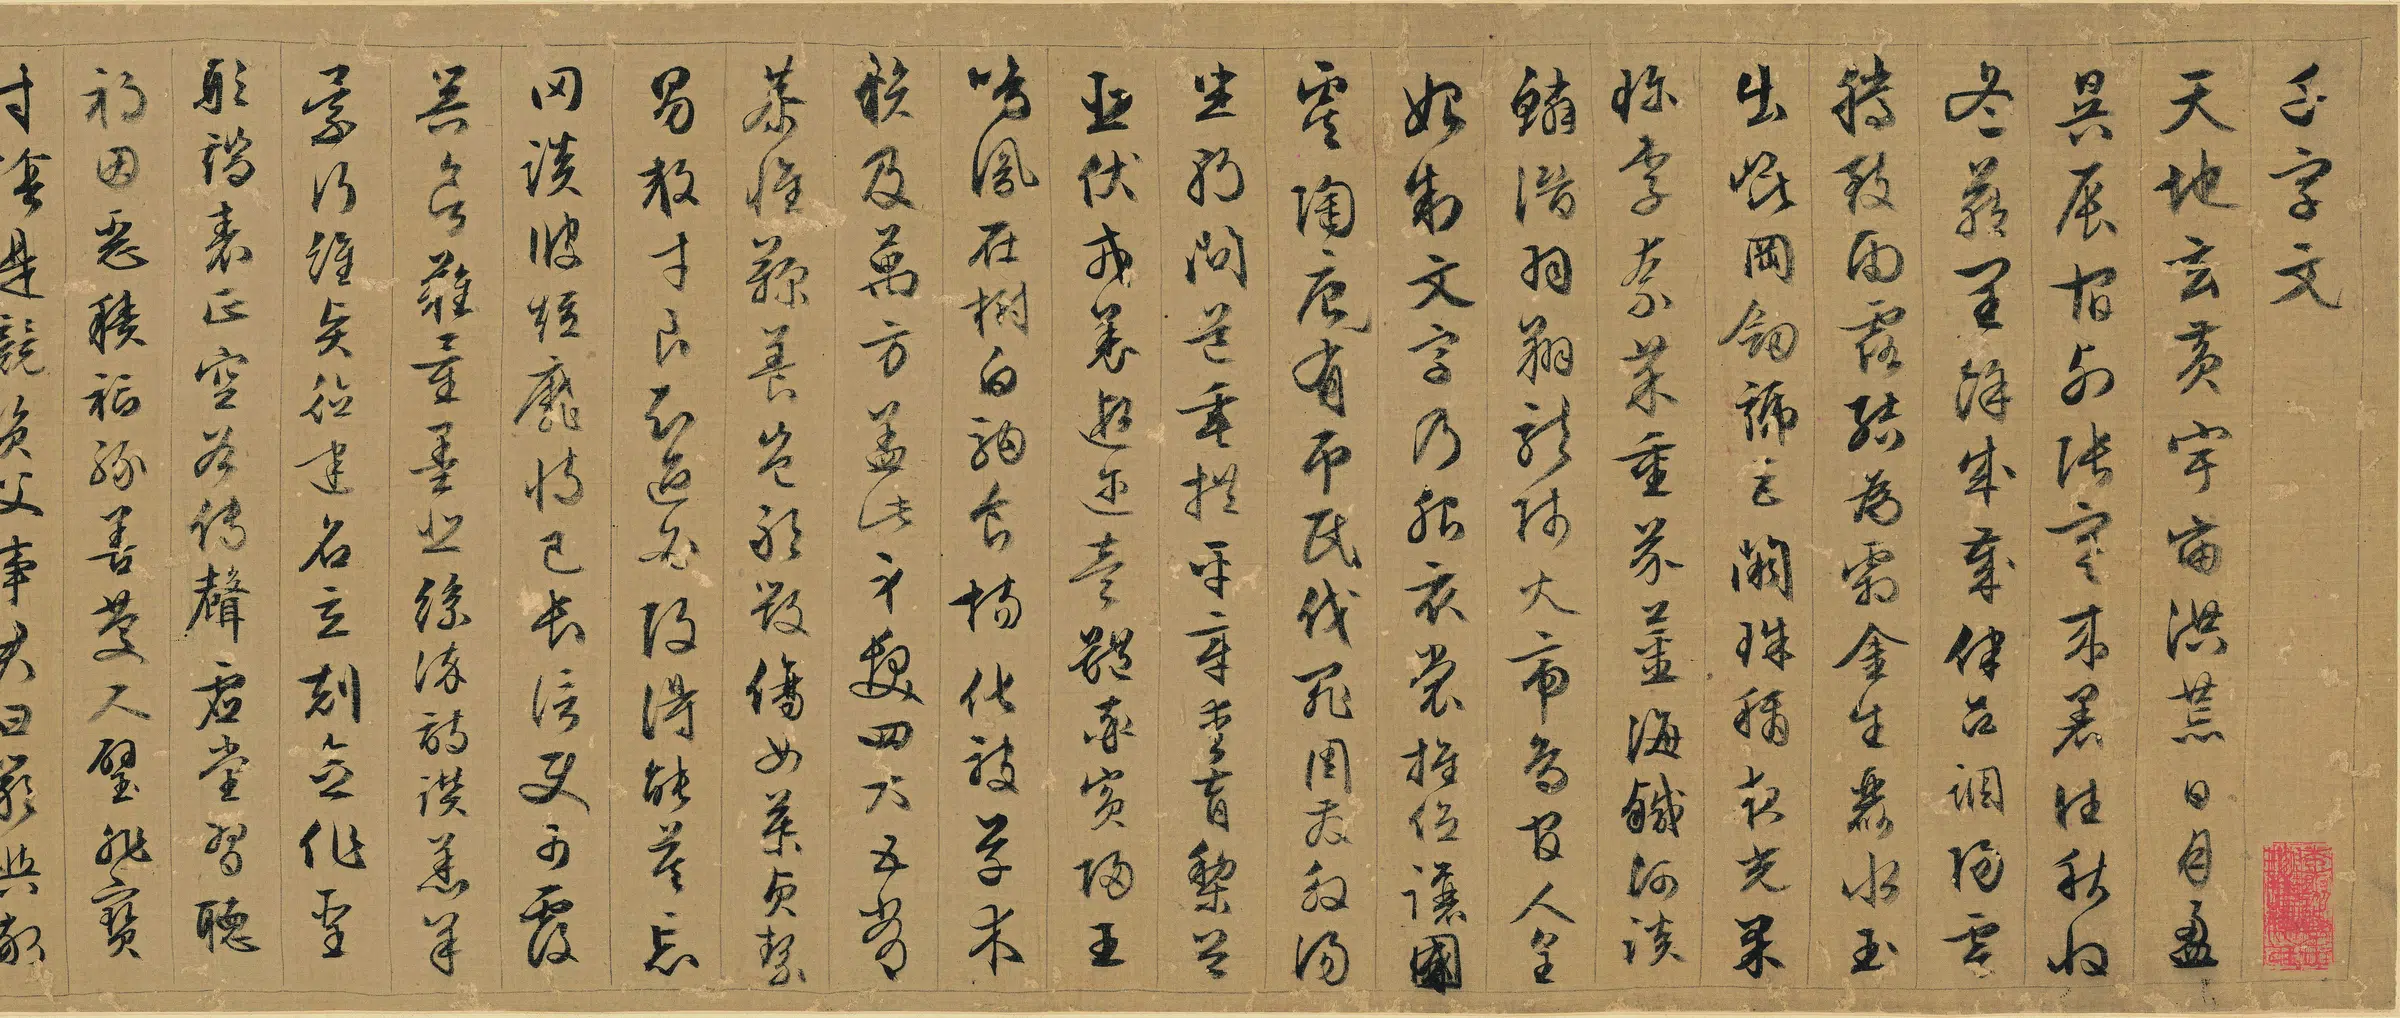 千字文
天地玄黃宇宙洪荒日月盈
昃辰宿列張寒來暑往秋收
冬藏閏餘成歲律呂調陽雲
騰致雨露結為霜金生麗水玉
出崑岡劍號巨闕珠稱夜光果
珍李柰菜重芥薑海鹹河淡
鱗潛羽翔龍師火帝鳥官人皇
始制文字乃服衣裳推位讓國
虞陶唐有弔民伐罪周發殷湯
坐朝問道垂拱平章愛育黎首
臣伏戎羌遐邇壹體率賓歸王
鳴鳳在樹白駒食場化被草木
賴及萬方蓋此身髮四大五常
恭惟鞠養豈敢毀傷女慕貞絜
男效才良知過必改得能莫忘
罔談彼短靡恃己長信使可覆
器欲難量墨悲絲染詩讚羔羊
景行維賢德建名立剋念作聖
形端表正空谷傳聲虛堂習聽
禍因惡積福緣善慶尺璧非寶
寸陰是競資父事君曰嚴與敬